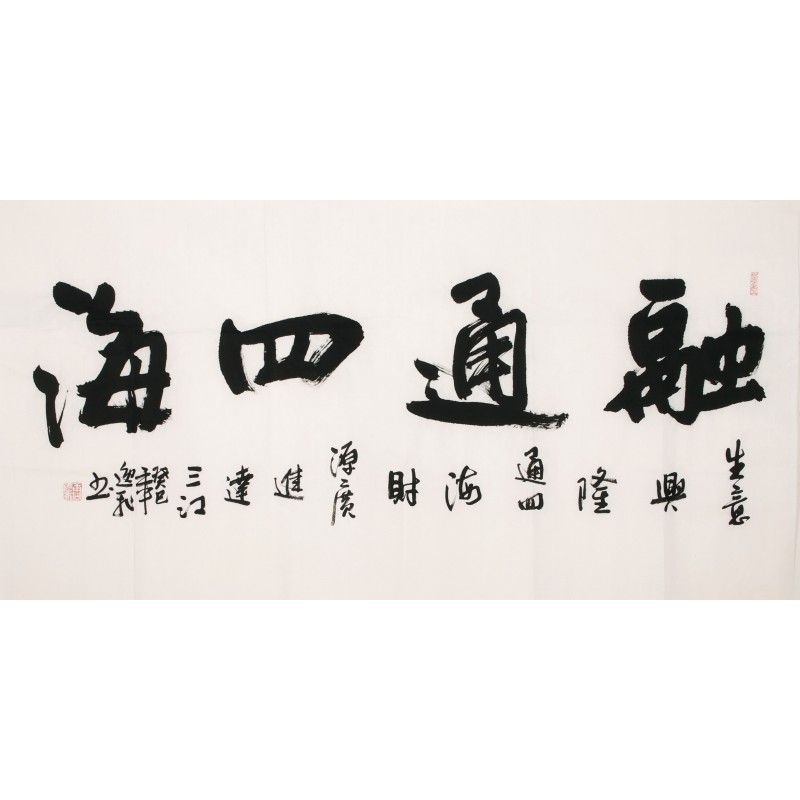 融通四海
生意興隆通四海財源廣進達三江癸巳年书